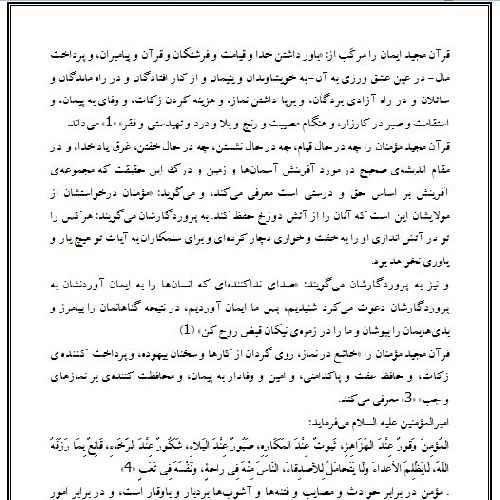 قرآن مجید ایمان را مرکّب از: «باور داشتن خدا و قیامت و فرشتگان و قرآن و پیامبران، و پرداخت
مال- در عین عشق ورزی به آن-به خویشاوندان و یتیمان و از کار افتادگان و در راه ماندگان و
سائلان و در راه آزادی بردگان، و برپا داشتن نماز، و هزینه کردن زکات، و وفای به پیمان، و
استقامت و صبر در کارزار، و هنگام مصیبت و رنج و بلا و درد و تهیدستی و فقر» «1» می داند.
قرآن مجید مؤمنان را چه در حال قیام، چه در حال نشستن، چه در حال خفتن، غرق یاد خدا، و در
مقام اندیشه‌ی صحیح در مورد آفرینش آسمان‌ها و زمین و درک این حقیقت که مجموعه‌ی
آفرینش بر اساس حق و درستی است معرفی می‌کند، و می‌گوید: «مؤمنان درخواستشان از
مولایشان این است که آنان را از آتش دوزخ حفظ کند. به پروردگارشان می‌گویند: هر کس را
تو در آتش اندازی او را به خفت و خواری دچار کرده‌ای و برای ستمکاران به آیات تو هیچ یار و
یاوری نخواهد بود.
و نیز به پروردگارشان می‌گویند: «صدای نداکننده‌ای که انسان‌ها را به ایمان آوردنشان به
پروردگارشان دعوت می‌کرد شنیدیم، پس ما ایمان آوردیم، در نتیجه گناهانمان را بیامرز و
بدی‌هایمان را بپوشان و ما را در زمره‌ی نیکان قبض روح کن» (1)
قرآن مجید مؤمنان را «خاشع در نماز، روی گردان از کارها و سخنان بیهوده، و پرداخت کننده‌ی
زکات، و حافظ عفت و پاکدامنی، و امین و وفادار به پیمان، و محافظت کننده‌ی بر نمازهای
واجب» «3» معرفی می‌کند.
امیرالمؤمنین علیه السلام می‌فرماید:
المُؤمِنُ وَقُورٌ عِنْدَ الهَزَاهِزِ، ثَبُوتٌ عِنْدَ المَکَارِهِ، صَبُورٌ عِنْدَ البَلَاءِ، شَکُورٌ عِنْدَ الرَّخَاءِ، قَانِعٌ بِمَا رَزَقَهُ
اللهُ، لَایَظْلِمُ الأعدَاءَ وَلَا یَتَحَامَلُ لِلأصدِقَاءِ، النَّاسُ مِنْهُ فِی راحَةٍ، وَنَفْسُهُ فِی تَعَبٍ «4»
. مؤمن در برابر حوادث و مصایب و فتنه‌ها و آشوب‌ها بردبار و باوقار است، و در برابر امور